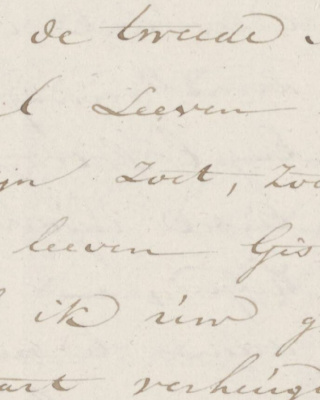 de tweede
Leeven
zoet, zo
leeven Gis
ik uw g
art verheug